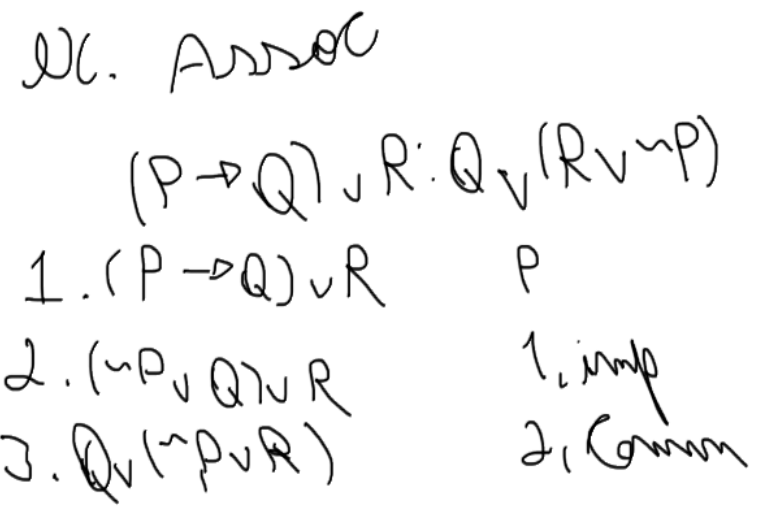 Assoc
(P → Q) ∨ R ∴ Q ∨ (R ∨ ~P)
1. (P → Q) ∨ R P
2. (~P ∨ Q) ∨ R 1, imp
3. Q ∨ (~P ∨ R) 2, Comm